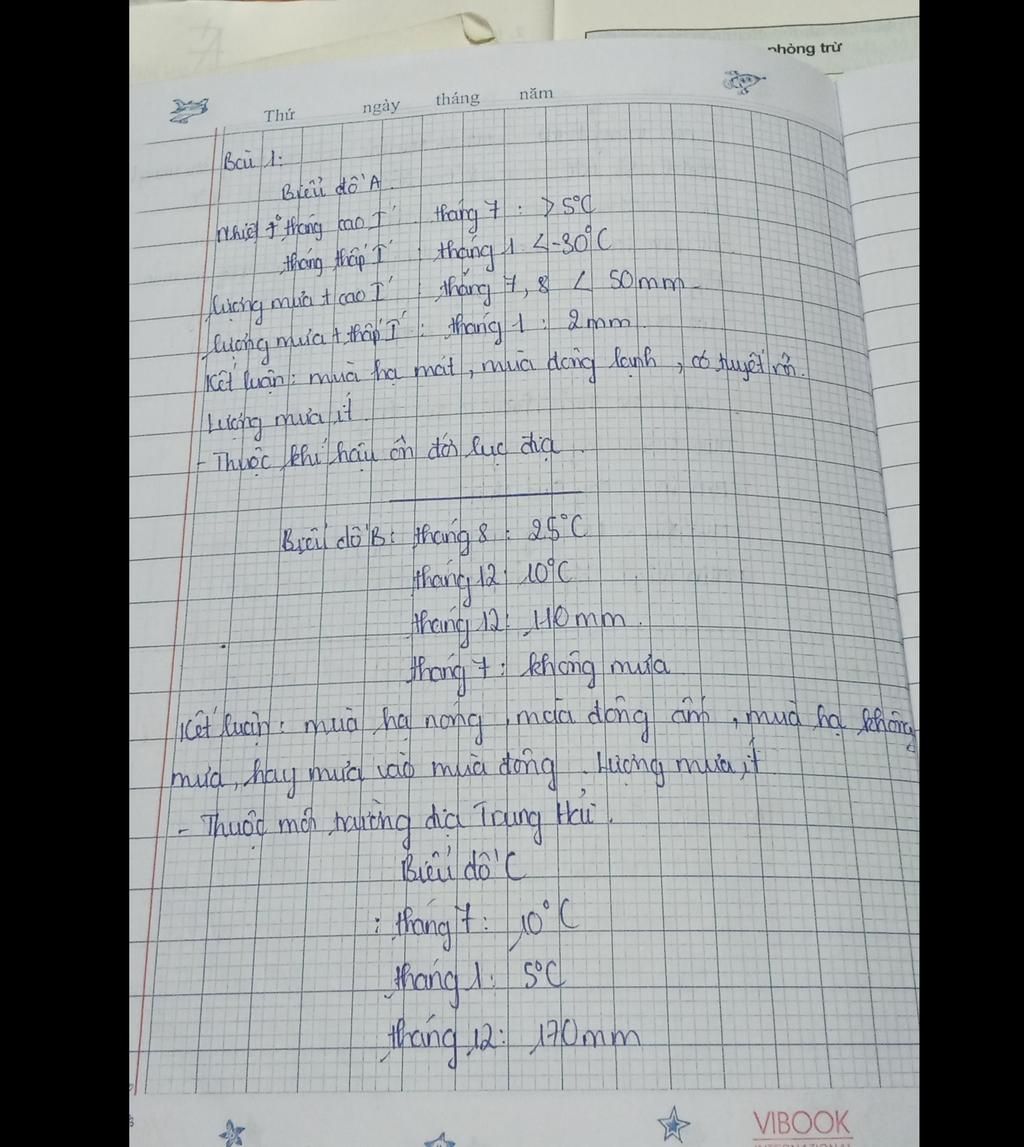 phòng trừ
Thứ ngày tháng năm
Bài 1:
Biểu đồ A.
Nhiệt tº tháng cao I' tháng 7 : > 5°C
tháng thấp I' : tháng 1 < -30°C
Lượng mưa t cao I' : tháng 7, 8 < 50mm
Lượng mưa t thấp I' : tháng 1 : 2mm.
Kết luận : mùa hạ mát, mùa đông lạnh, có tuyết rơi.
Lượng mưa ít.
- Thuộc khí hậu ôn đới lục địa.
Biểu đồ B : tháng 8 : 25°C
tháng 12 : 10°C
tháng 12 : 110mm.
tháng 7 : không mưa
Kết luận : mùa hạ nóng, mùa đông ấm, mùa hạ không
mưa, hay mưa vào mùa đông. Lượng mưa ít
- Thuộc môi trường địa Trung Hải.
Biểu đồ C
: tháng 7 : 10°C
tháng 1 : 5°C
tháng 12 : 170mm
VIBOOK